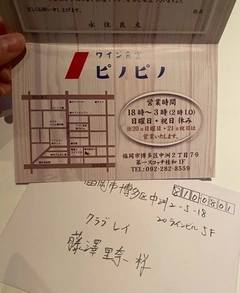 しくお願い申し上げます。
永住良太
ワイン食堂
ピノピノ
営業時間
18時〜3時(2時LO)
日曜日・祝日休み
※20日日曜日・21日祝日は
営業いたします。
福岡市博多区中洲2丁目7号
第一スコッチ桂林1F
TEL:092-282-8559
8100801
福岡市博多区中洲2-5-18
20ラインビル5F
クラブレイ
藤澤里奈 様